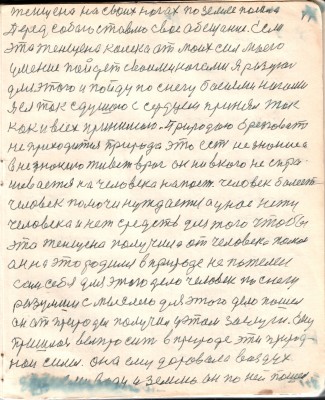 женщена на своих ногах по земле пошла
Перед собою ставлю свое обещание. Если
эта женщена калека от моих сил моего
умения пойдет своими ногами я разую
для этого и пойду по снегу босыми ногами
Я ел так с душою с сердцем принял так
как и всех принимаю. Природою брезговать
не приходится природа это есть не знание а
в незнанию живет враг он никого не спра-
шивается на человека напост человек болеет
человек помочи нуждается а у нас нету
человека и нет средств для того чтобы
эта женщена получила от человека помощ
а на это родился в природе не пожелел
сам себя для этого дело человек по снегу
разумши с мыслею для этого дело пошел
он от природы получил в этом заслуги. Ему
пришлося выпросить в природе эти природ-
ной силы. она ему даровала воздух
воду и землю он по ней пошел